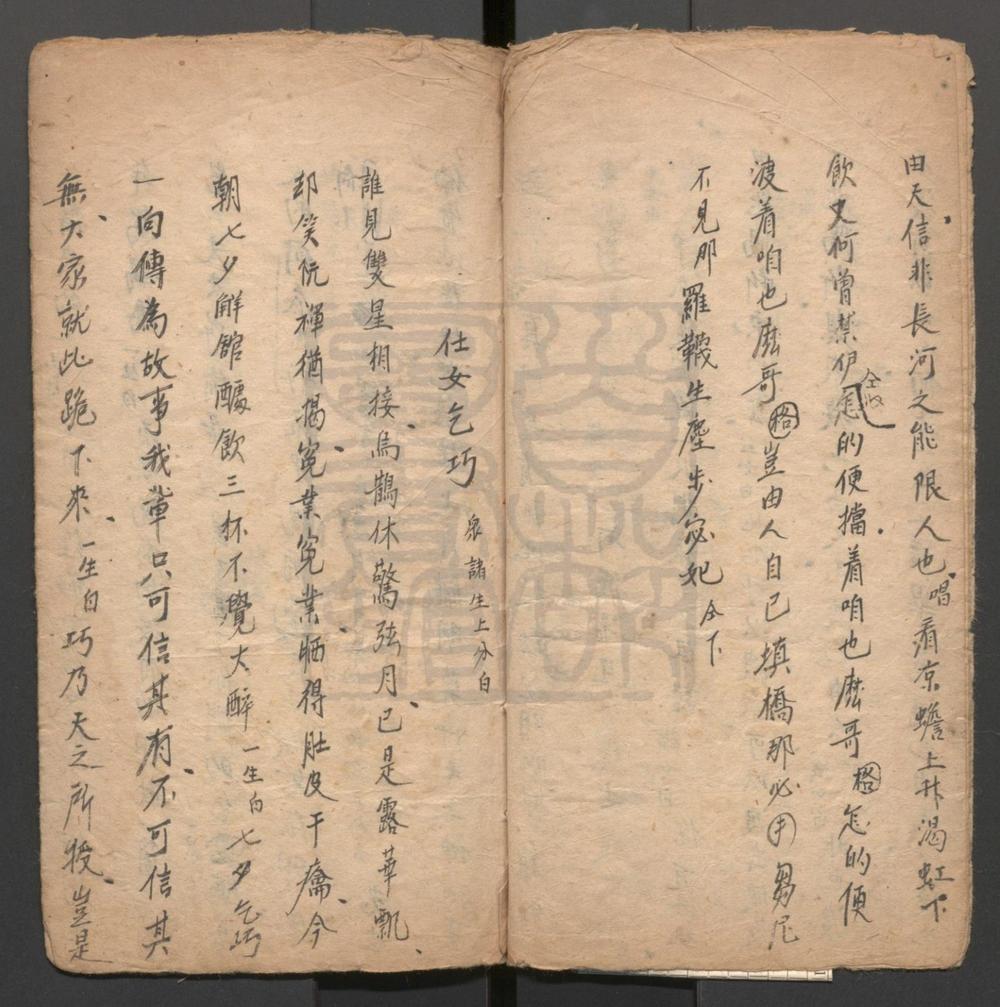 由天信非長河之能限人也唱看京蟾上升渴虹下
飲丈何曾禁伊怎的便擋着咱也麽哥怎的便
全收
渡着咱也麽哥豈由人自已填橋那必
不見那羅韈生塵步宓妃仝下
仕女乞巧 衆諸生上分白
誰見雙星相接烏鵲休驚弦月已是露華飄
却笑阮褌猶揭寃業寃業晒得肚皮干癟今
朝七夕觧舘醵飲三杯不覺大醉一生白七夕乞巧
一向傳為故事我輩只可信其有不可信其
無大家就此跪下來一生白巧乃天之所授豈是